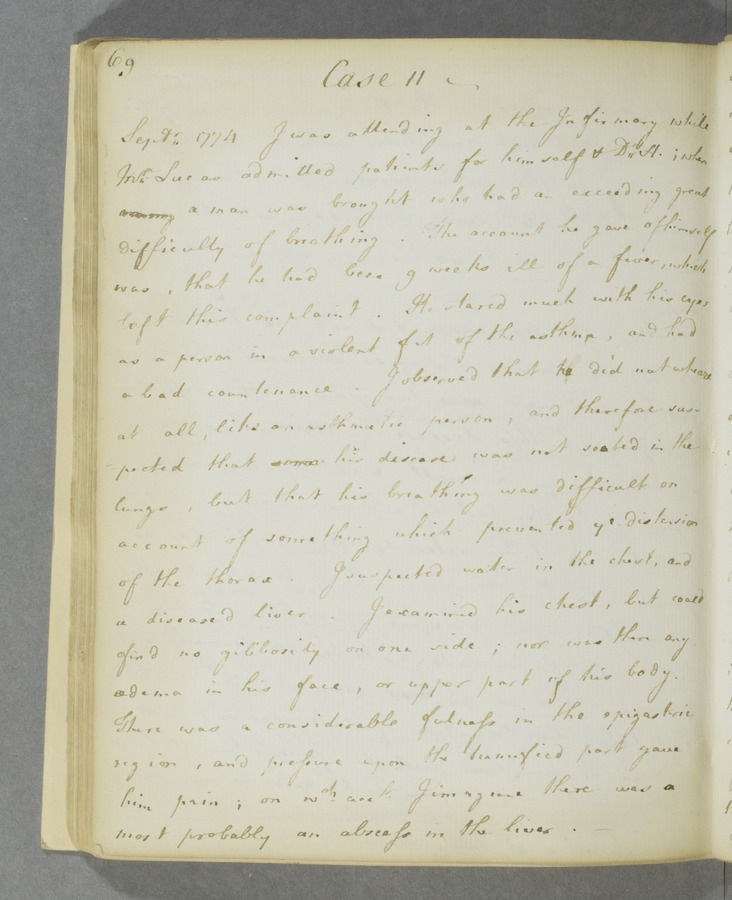 69
Case 11
Septr. 1774 I was attending at the Infirmary while
Mr. Lucas admitted patients for himself & Dr. St. ; when
a man was brought who had an exceeding great
difficulty of breathing . The account he gave of himself
was , that he had been 9 weeks ill of a fever, which
left this complaint . He stared much with his eyes
as a person in a violent fit of the asthma , and had
a bad countenance . I observed that he did not wheeze
at all, like an asthmatic person , and therefore sus-
-pected that his disease was not seated in the
lungs , but that his breathing was difficult on
account of something which prevented ye distension
of the thorax . I suspected water in the chest, and
a diseased liver . I examined his chest, but could
find no gibbosity on one side ; nor was there any
œdema in his face , or upper part of his body.
There was a considerable fulness in the epigastric
region , and pressure upon the tumified part gave
him pain ; on wch acct. I imagine there was a
most probably an abscess in the liver . —